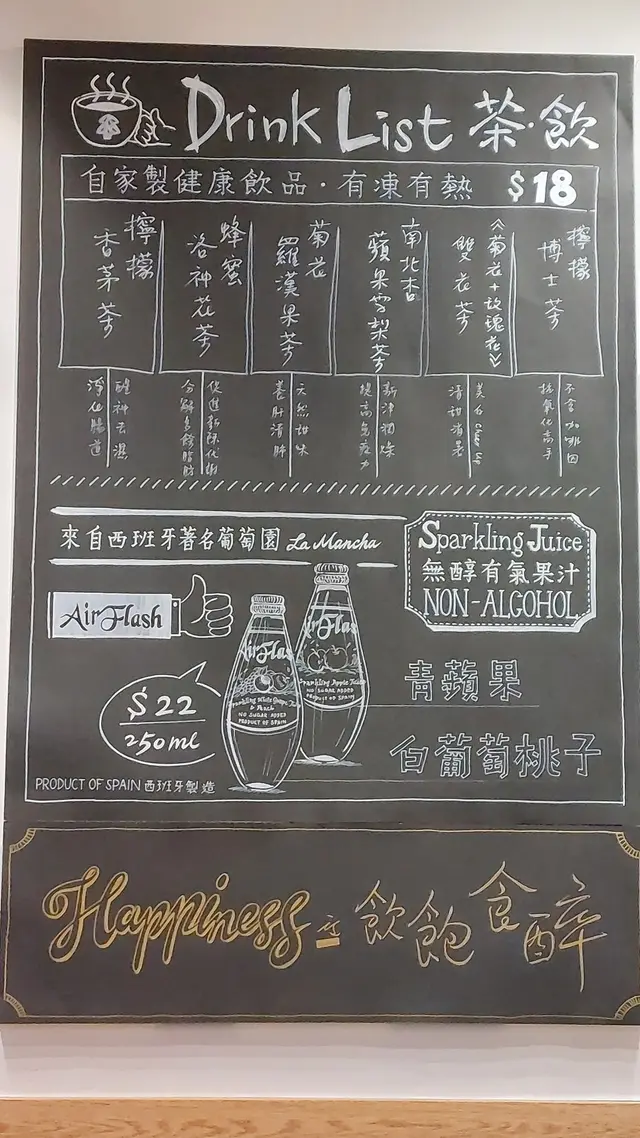 Drink List 茶·飲
自家製健康飲品·有凍有熱 $18
檸檬
博士茶
《菊花+玫瑰花》
雙花茶
南北杏
蘋果雪梨茶
菊花
羅漢果茶
蜂蜜
洛神花茶
檸檬
香茅茶
不含咖啡因
抗氧化高手
美白 cheer up
清甜消暑
新津潤燥
提高免疫力
天然甜味
養肝清肺
促進新陳代謝
分解多餘脂肪
醒神去濕
淨化腸道
來自西班牙著名葡萄園 La Mancha
Sparkling Juice
無醇有氣果汁
NON-ALGOHOL
AirFlash
AirFlas
Sparkling Apple Juice
NO SUGAR ADDED
PRODUCT OF SPAIN
AirFlas
Sparkling White Grape
& Peach
NO SUGAR ADDED
PRODUCT OF SPAIN
青蘋果
$22
250ml
白葡萄桃子
PRODUCT OF SPAIN 西班牙製造
Happiness is 飲飽食醉